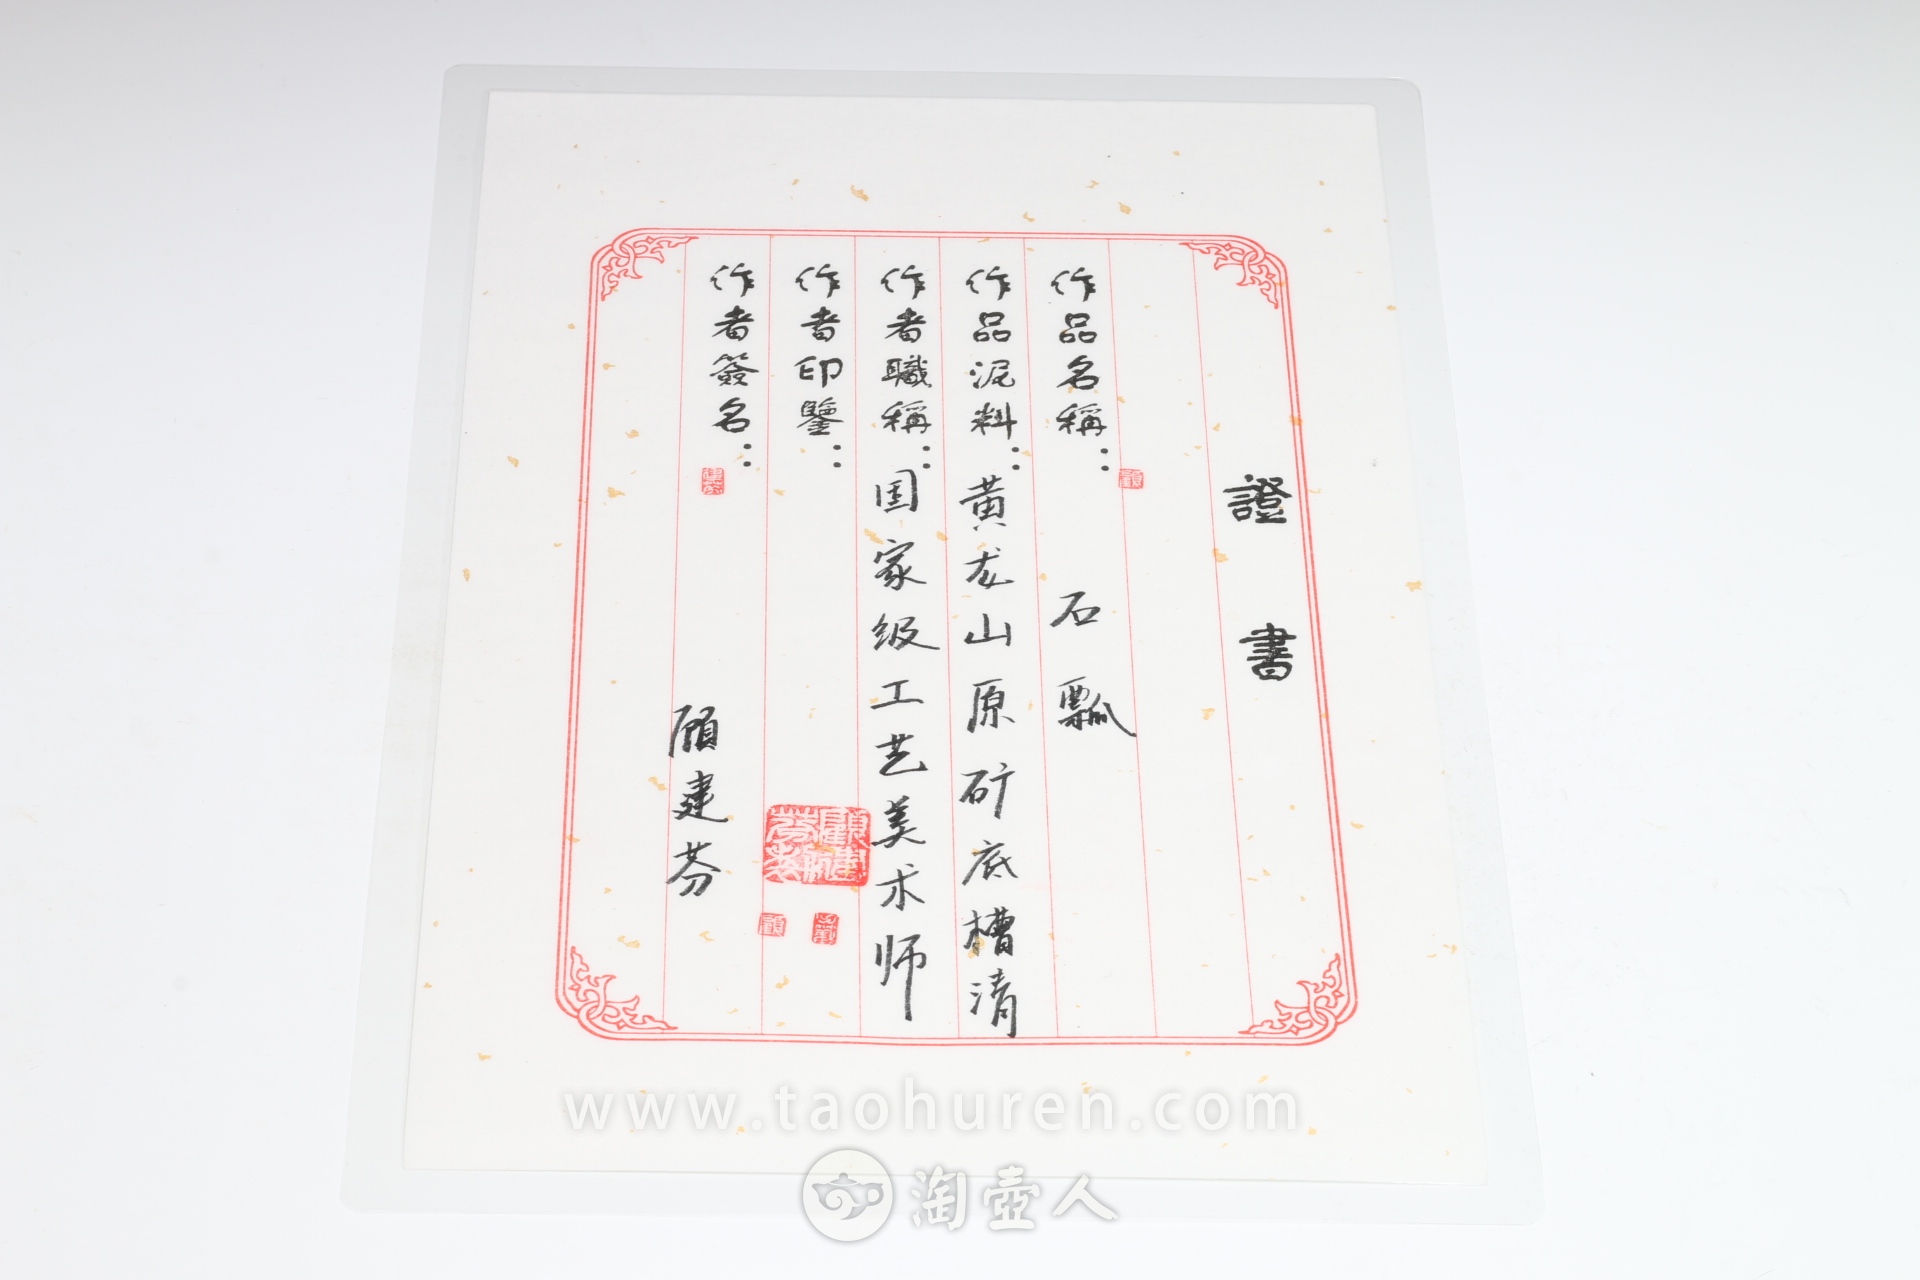 證書
作品名稱：石瓢
作品泥料：黄龙山原矿底槽清
作者職稱：国家级工艺美术师
作者印鑒：
作者簽名：顾建芬
顧
www.taohuren.com
淘壶人